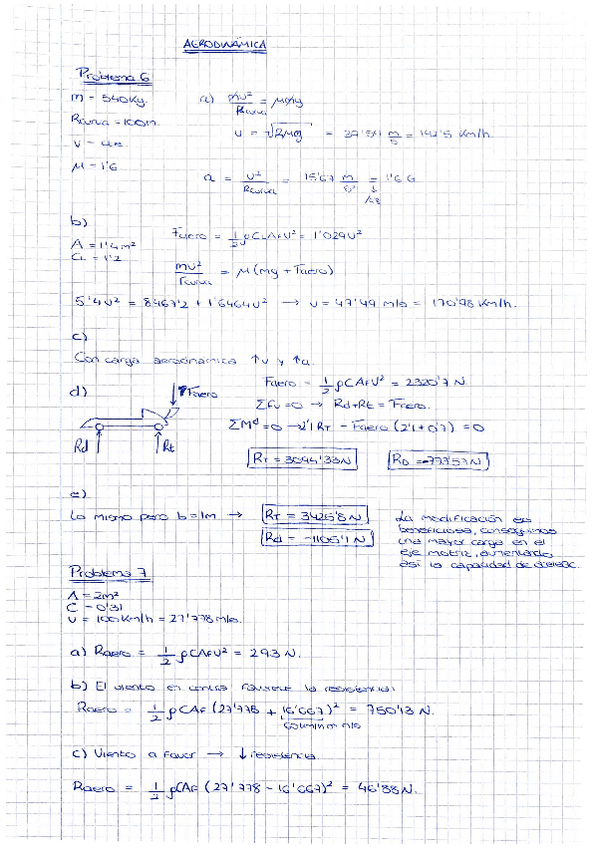 AERODINÁMICA
Problema 6
m = 540Kg.
Rcurva = 100m.
v = cte
μ = 1'6
a) mv²/Rcurva = μmg
v = √Rμg = 39'54 m/s = 142'5 Km/h.
a = v²/Rcurva = 15'67 m/s² = 1'6 G
/9'8
b)
A = 1'4m²
CL = 1'2
Faero = 1/2 ρCLAFV² = 1'029V²
mv²/Rcurva = μ(mg + Faero)
5'4v² = 8467'2 + 1'6464v² → v = 47'49 m/s = 170'98 Km/h.
c)
Con carga aerodinámica ↑v y ↑a.
d)
Faero
Rd
Rt
Faero = 1/2 ρCAFV² = 2320'7 N
ΣFv=0 → Rd+Rt = Faero.
ΣMd=0 → 2'1RT − Faero (2'1+0'7) = 0
RT = 3094'33N
RD = -773'57N
e)
Lo mismo pero b=1m →
RT = 3425'8N
Rd = -1105'1N
La modificación es
beneficiosa, conseguimos
una mayor carga en el
eje motriz, aumentando
así la capacidad de
Problema 7
A = 2m²
C = 0'31
v = 100Km/h = 27'778 m/s.
a) Raero = 1/2 ρCAFV² = 293 N.
b) El viento en contra
Raero = 1/2 ρCAF (27'778 + 16'667)² = 750'13 N.
c) Viento a favor → ↓resistencia.
Raero = 1/2 ρCAF (27'778 − 16'667)² = 46'88N.